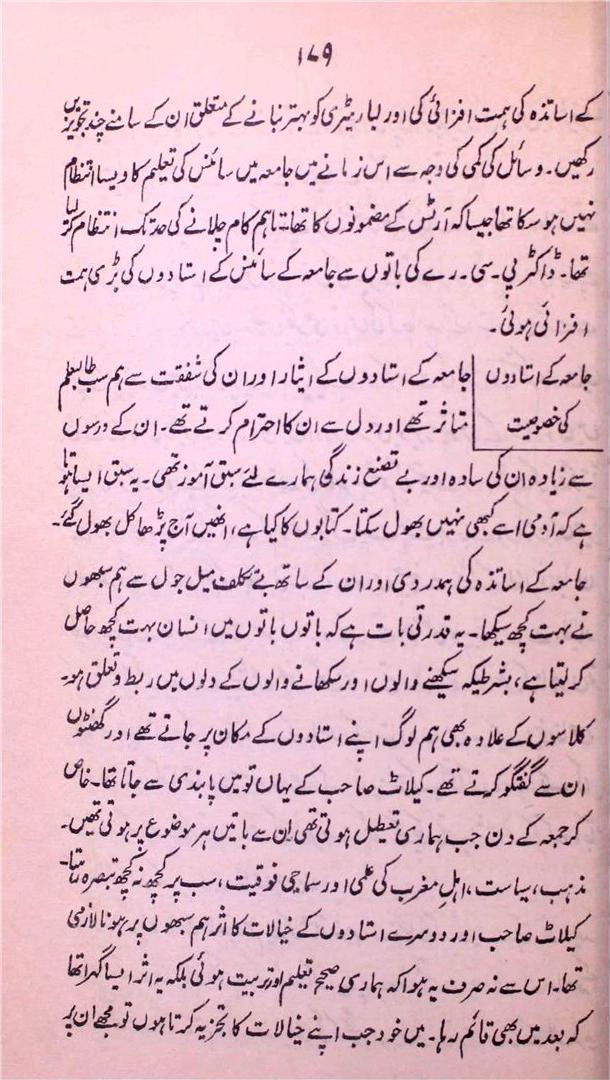 ۱۷۹
کے اساتذہ کی ہمت افزائی کی اور لباریٹری کو بہتر بنانے کے متعلق ان کے سامنے چند تجویزیں
رکھیں۔ وسائل کی کمی کی وجہ سے اس زمانے میں جامعہ میں سائنس کی تعلیم کا ویسا انتظام
نہیں ہو سکا تھا جیسا کہ آرٹس کے مضمونوں کا تھا۔ تاہم کام چلانے کی حد تک انتظام کر لیا
تھا۔ ڈاکٹر پی۔ سی۔ رے کی باتوں سے جامعہ کے سائنس کے استادوں کی بڑی ہمت
افزائی ہوئی۔
جامعہ کے استادوں
کی خصوصیت
جامعہ کے استادوں کے ایثار اور ان کی شفقت سے ہم سب طالبعلم
متاثر تھے اور دل سے ان کا احترام کرتے تھے۔ ان کے درسوں
سے زیادہ ان کی سادہ اور بے تصنع زندگی ہمارے لئے سبق آموز تھی۔ یہ سبق ایسا ہوتا
ہے کہ آدمی اسے کبھی نہیں بھول سکتا۔ کتابوں کا کیا ہے، انھیں آج پڑھا کل بھول گئے۔
جامعہ کے اساتذہ کی ہمدردی اور ان کے ساتھ بے تکلف میل جول سے ہم سبھوں
نے بہت کچھ سیکھا۔ یہ قدرتی بات ہے کہ باتوں باتوں میں انسان بہت کچھ حاصل
کر لیتا ہے، بشرطیکہ سیکھنے والوں اور سکھانے والوں کے دلوں میں ربط و تعلق ہو۔
کلاسوں کے علاوہ بھی ہم لوگ اپنے استادوں کے مکان پر جاتے تھے اور گھنٹوں
ان سے گفتگو کرتے تھے۔ کیلاٹ صاحب کے یہاں تو میں پابندی سے جاتا تھا۔ خاص
کر جمعہ کے دن جب ہماری تعطیل ہوتی تھی ان سے باتیں ہر موضوع پر ہوتی تھیں۔
مذہب، سیاست، اہلِ مغرب کی علمی اور سماجی فوقیت، سب پر کچھ نہ کچھ تبصرہ رہتا۔
کیلاٹ صاحب اور دوسرے استادوں کے خیالات کا اثر ہم سبھوں پر ہونا لازمی
تھا۔ اس سے نہ صرف یہ ہوا کہ ہماری صحیح تعلیم اور تربیت ہوئی بلکہ یہ اثر ایسا گہرا تھا
کہ بعد میں بھی قائم رہا۔ میں خود جب اپنے خیالات کا تجزیہ کرتا ہوں تو مجھے ان پر